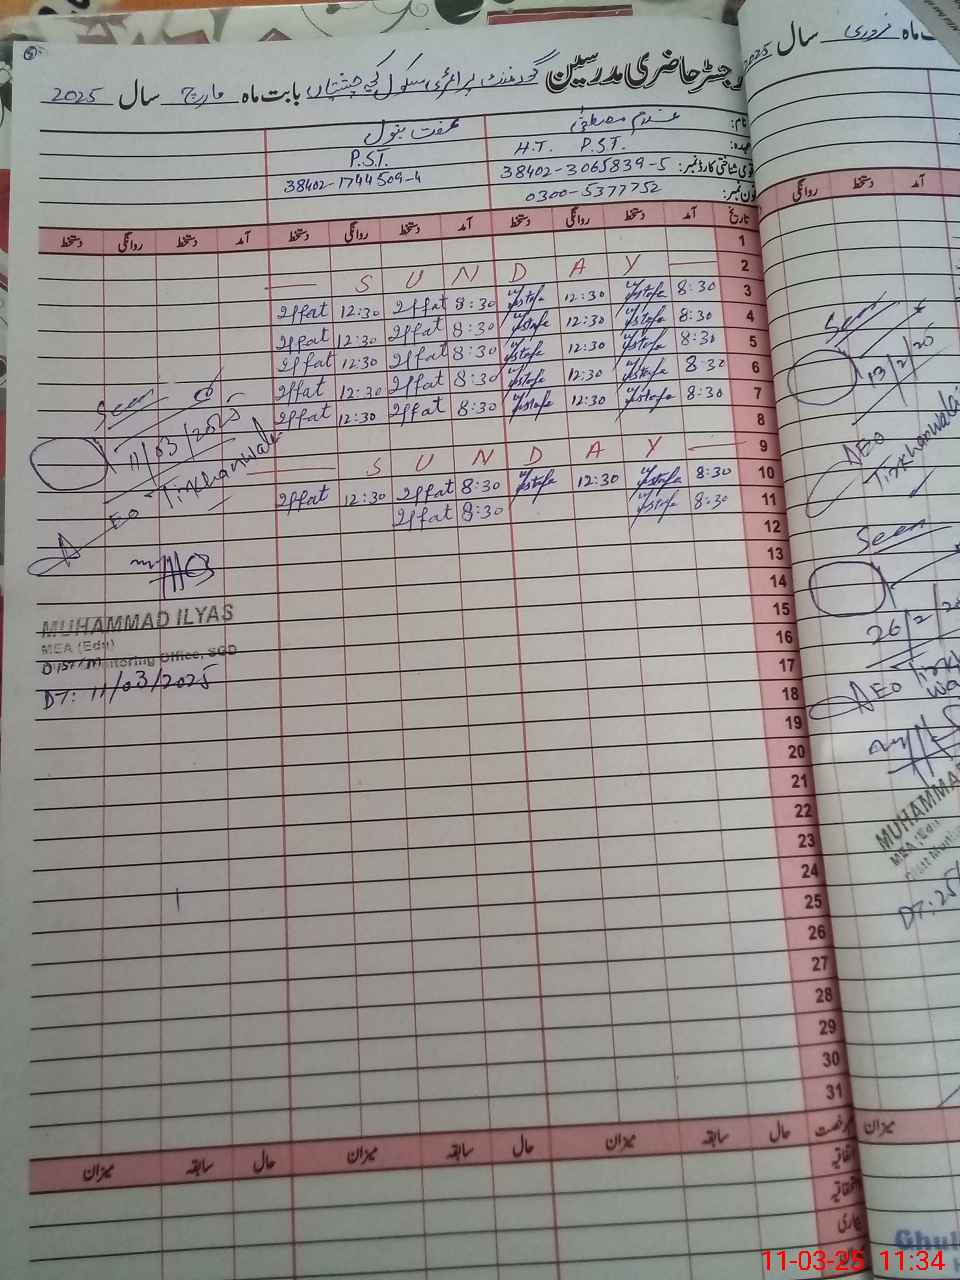 رجسٹر حاضری مدرسین گورنمنٹ پرائمری سکول بابت ماہ مارچ سال 2025
نام: غلام مصطفیٰ عفت بتول
عہدہ: H.T. P.S.T. P.S.T.
قومی شناختی کارڈ نمبر: 38402-3065839-5 38402-1744509-4
فون نمبر: 0300-5377752
تاریخ آمد دستخط روانگی دستخط آمد دستخط روانگی دستخط آمد دستخط روانگی دستخط
1
2 — S U N D A Y —
3 8:30 Mustafa 12:30 Mustafa 8:30 Iffat 12:30 Iffat
4 8:30 Mustafa 12:30 Mustafa 8:30 Iffat 12:30 Iffat
5 8:30 Mustafa 12:30 Mustafa 8:30 Iffat 12:30 Iffat
6 8:30 Mustafa 12:30 Mustafa 8:30 Iffat 12:30 Iffat
7 8:30 Mustafa 12:30 Mustafa 8:30 Iffat 12:30 Iffat
8
9 — S U N D A Y —
10 8:30 Mustafa 12:30 Mustafa 8:30 Iffat 12:30 Iffat
11 8:30 Mustafa 8:30 Iffat
12
13
14
15
16
17
18
19
20
21
22
23
24
25
26
27
28
29
30
31
رخصت حال سابقہ میزان حال سابقہ میزان
اتفاقیہ
بیماری
Seen
11/03/2025
AEO Tirkhanwala
MUHAMMAD ILYAS
MEA (Edu)
Distt Monitoring Office, SGD
DT: 11/03/2025
ماہ فروری سال 2025
آمد دستخط روانگی
Seen
13/2/25
AEO
Tirkhanwala
Seen
26/2/2025
AEO
MUHAMMA
MEA (Edu
DT: 25/
میزان
Ghul
11-03-25 11:34